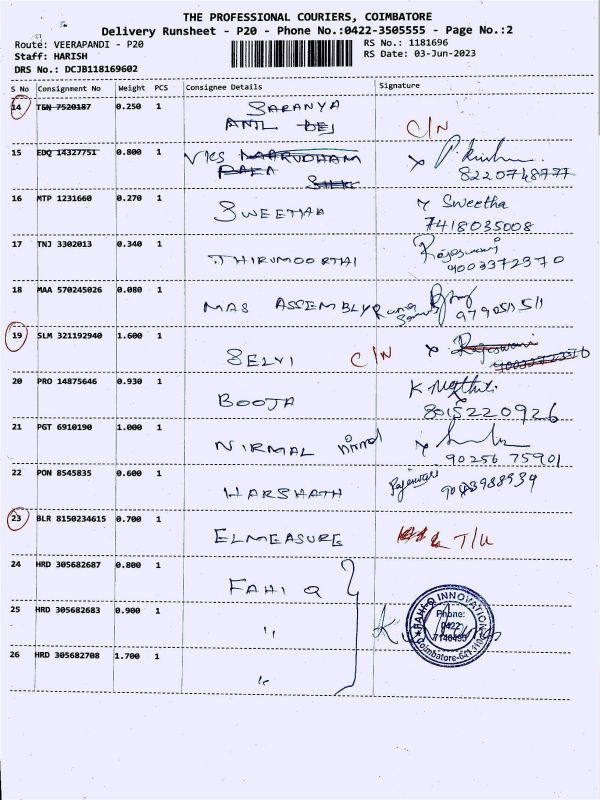 THE PROFESSIONAL COURIERS, COIMBATORE
Delivery Runsheet - P20 - Phone No.:0422-3505555 - Page No.:2
Route: VEERAPANDI - P20 RS No.: 1181696
Staff: HARISH RS Date: 03-Jun-2023
DRS No.: DCJB118169602
S No Consignment No Weight PCS Consignee Details Signature
14 TEN 7520187 0.250 1 SARANYA
ANIL DEJ C/N
15 EDQ 14327751 0.800 1 VKS MAARUDHAM
8220748777
16 MTP 1231660 0.270 1 SWEETHA Sweetha
7418035008
17 TNJ 3302013 0.340 1 THIRUMOORTHI Rajeswari
9003372370
18 MAA 570245026 0.080 1 MAS ASSEMBLY
979051511
19 SLM 321192940 1.600 1 SELVI C/N Rajeswari
20 PRO 14875646 0.930 1 BOOJA
8015220926
21 PGT 6910190 1.000 1 NIRMAL
90256 75901
22 PON 8545835 0.600 1 HARSHATH Rajeswari
23 BLR 8150234615 0.700 1 ELMEASURE T/U
24 HRD 305682687 0.800 1 FAHI Q
25 HRD 305682683 0.900 1 "
FAHI Q INNOVATION
Phone:
0422
26 HRD 305682708 1.700 1 "